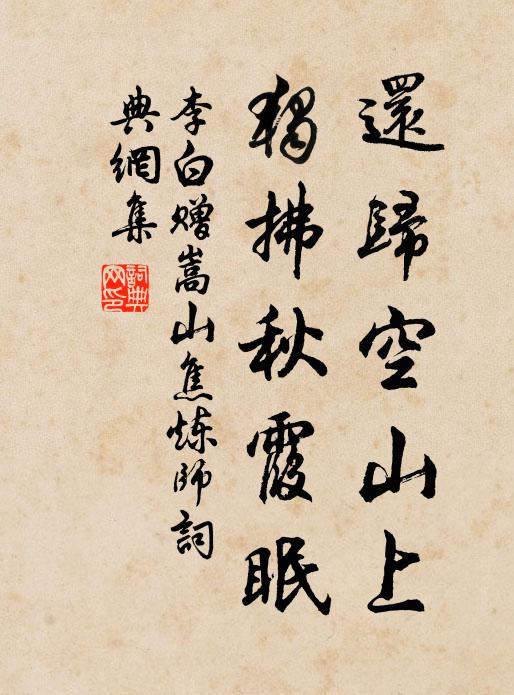 還歸空山上
獨拂秋霞眠
李白贈嵩山焦煉師詞
典網集
詞典
网印